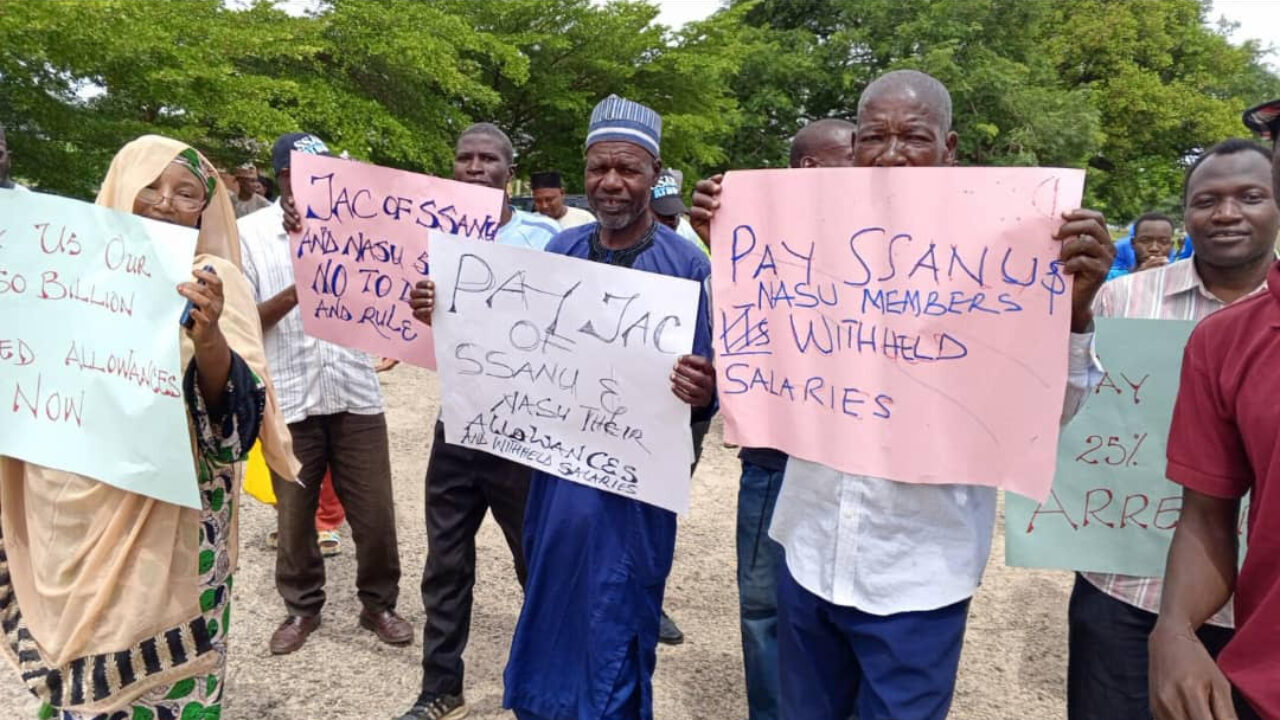 Us Our
50 Billion
ED ALLOWANCES
NOW
JAC OF SSANU
AND NASU
NO TO
AND RULE
PAY JAC
OF
SSANU &
NASU THEIR
ALLOWANCES
AND WITHHELD SALARIES
PAY SSANU $
NASU MEMBERS
WITHHELD
SALARIES
AY
25%
ARRE